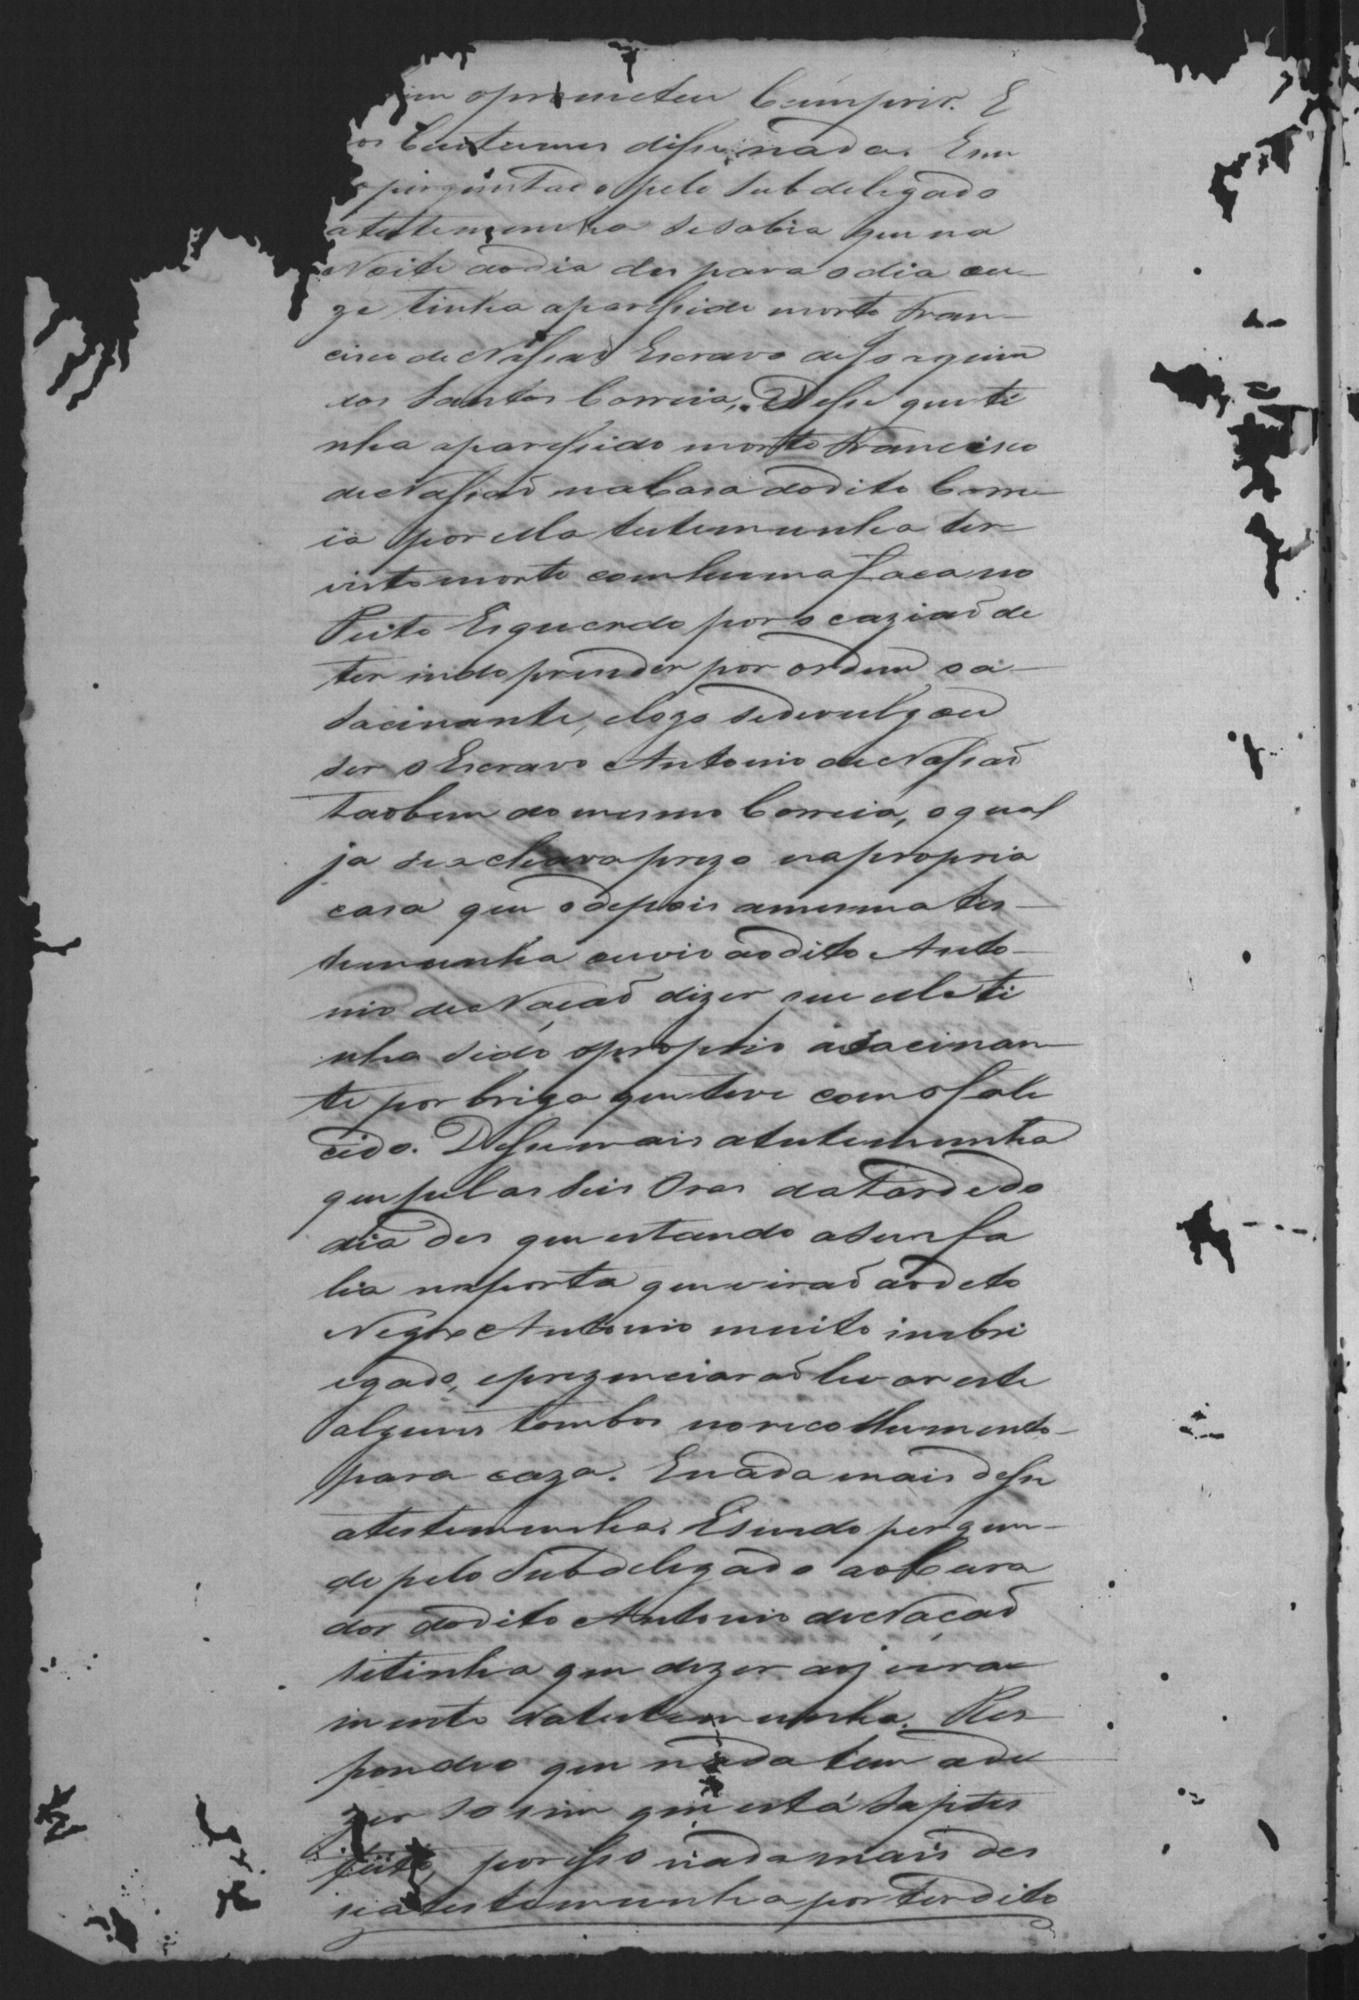 im oprometeu Cumprir. E
os Custumes disse nada. Em
perguntado pelo Subdelegado
atestemunha Sesabia que na
Noite dodia des para odia on-
ze tinha aparessido morto Fran-
cisco de Nassaõ Escravo de Joaquim
dos Santos Correia, Disse que ti
nha aparessido morto Francisco
de Nassaõ na Casa dodito Corre-
ia por ella testemunha ter
visto morto com huma faca no
Peito Esquerdo por ocaziaõ de
ter indo prender por ordem oa-
sacinante, elogo sedevulgou
ser o Escravo Antonio de Nassaõ
taobem do mesmo Correia, oqual
ja seachava prezo napropria
casa que odepois amesma tes-
temunha ouvio aodito Anto-
nio de Naçaõ dizer que elle ti
nha sido oproprio asacinan-
te por briga que teve com ofale
cido. Disse mais atestemunha
que pelas seis Oras da Tarde do
dia des que estando asua fa
lia naporta que viraõ aodito
Negro Antonio muito inebri
egado, eprezenciaraõ levar este
alguns tombos no recolhimento
para caza. Enada mais disse
atestemunha. Esendo pergun-
do pelo Subdelegado ao Cura
dor dodito Antonio de Naçaõ
setinha que dizer aojura-
mento datestemunha. Res-
pondeo que nada tem adi
zer so sim que está Saptes
feito, porisso nada mais des
se atestemunha por ter dito